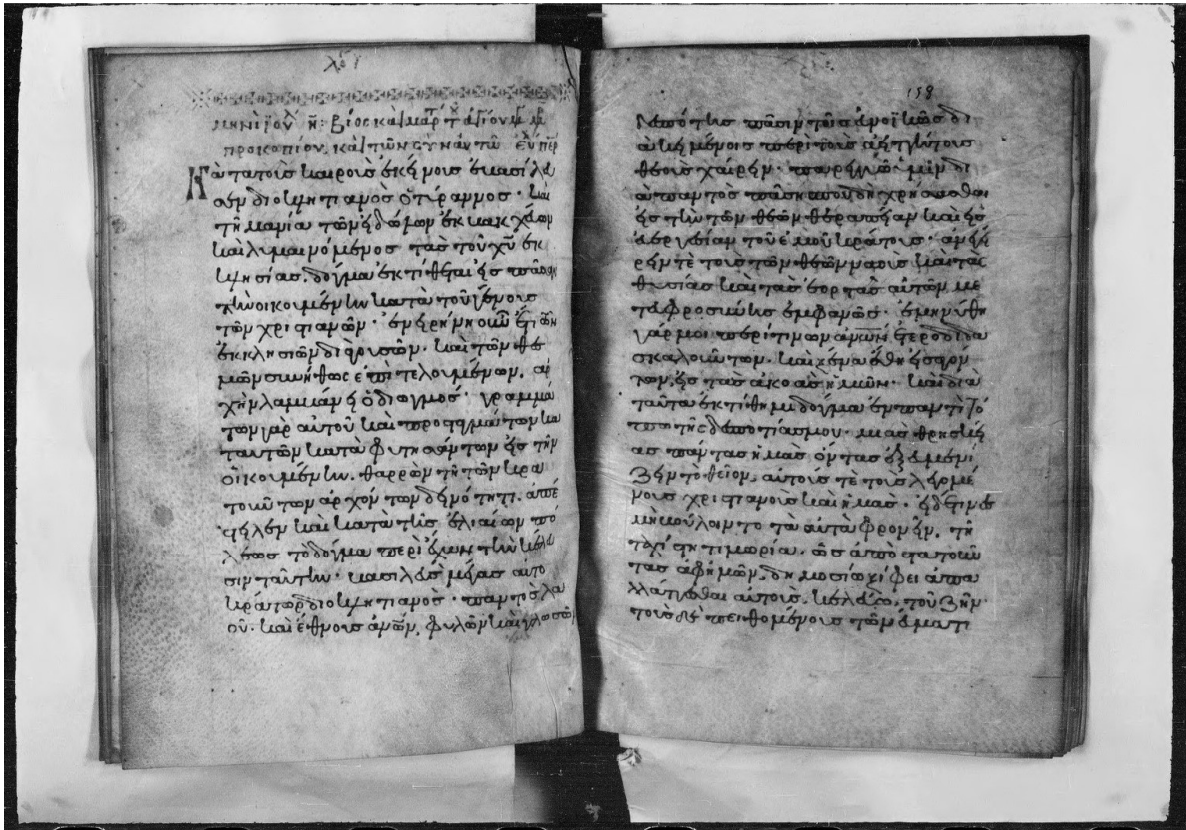 λόγ
μηνὶ ἰουλ η: βίος κ(αὶ) μαρτ τ ἁγίου μ μρ
προκοπίου. κ(αὶ) τῶν σὺν αὐτῶ εὐ περ
Κατὰ τοῖς καιροῖς ἐκείνοις ἐβασίλευ
σεν διοκλητιανὸς ὁ τύραννος· καὶ
τῆ μανία τῶν εἰδώλων ἐκβακχεύων
καὶ λυμαινόμενος τὰς τοῦ χ(ριστο)ῦ ἐκ
κλησίας. δόγμα ἐκτίθεται εἰς πᾶσαν
τὴν οἰκουμένην κατὰ τοῦ γένους
τῶν χριστιανῶν· ἐν εἰρήνη οὖν ἔτι τῶν
ἐκκλησιῶν διαγουσῶν. καὶ τῶν θε
σμῶν συνήθως ἐπιτελουμένων. ἀρ
χὴν λαμβάνει ὁ διωγμός· γραμμά
των γὰρ αὐτοῦ καὶ προσταγμάτων κα
ταυτῶν καταφοιτησάντων εἰς τὴν
οἰκουμένην. θαρρῶν τῆ τῶν κρα
τούντων ἀρχόντων δεινότητι. ἀπέ
στειλεν καὶ κατὰ τῆς ἐλιαίων πό
λεως τὸ δόγμα περιέχων τὴν κέλευ
σιν ταύτην· βασιλεὺς μέγας αὐτο
κράτωρ διοκλητιανὸς· παντὸς λα
οῦ. καὶ ἔθνους ἀν(θρώπ)ων, φυλῶν καὶ γλωσσῶν
158
δεσπότης πᾶσιν τοῖς ἀνοϊκῶς δι
ακειμένοις περὶ τοὺς ἀητήτους
θεοὺς χαίρειν· παρεγγυῶ ὑμῖν δι
ὰ παντὸς πάση σπουδῆ χρήσασθαι
εἰς τὴν τῶν θεῶν θεραπείαν καὶ εὐ
εργεσίαν τοῦ ἐμοῦ κράτους· ἀνεγεί
ρειν τὲ τοὺς τῶν θεῶν ναοὺς καὶ τὰς
θυσίας καὶ τὰς ἑορτὰς αὐτῶν με
τ' εὐφροσύνης ἐμφανῶς· ἐμηνύθη
γάρ μοι περί τινων ἀν(θρώπ)ων ἑτεροδιδα
σκαλούντων. καὶ ξένα ἔθη εἰσφερόν
των, εἰς τὰς ἀκοὰς ἡμῶν· καὶ διὰ
ταῦτα ἐκτίθημι δόγμα ἐν παντὶ τό
πω τῆς δεσποτίας μου· μιᾶς θρησκεί
ας πάντας ἡμᾶς ὄντας ἐξευμενί
ζειν τὸ θεῖον, αὐτούς τε τοὺς λεγομέ
νους χριστιανοὺς καὶ ἡμᾶς· εἰ δέ τινες
μὴ βούλοιντο τὰ αὐτὰ φρονεῖν, τῆ
ἐσχάτη τιμωρία. ὡς ἀποστατοῦν
τας ἀφ' ἡμῶν, δημοσίω ξίφει ἀπα
λλάττεσθαι αὐτοὺς, κελεύω, τοῦ ζῆν·
τοὺς δὲ πειθομένους τῶ ἐμῶ τι